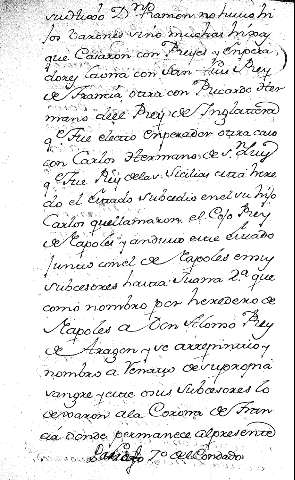 su dicho Dn Ramon no hubo hi
jos barones sino muchas hijas
que Casaron con Reyes y enpera
dores la una con San Luis Rey
de Francia otra con Ricardo Her
mano del Rey de Inglaterra
qe fue electo enperador otra caso
con Carlos Hermano de Sn Luys
qe fue Rey de las Sicilias esta here
do el Estado subcedio en el su hijo
Carlos que llamaron el Cojo Rey
de Napoles y anduvo este Estado
junto con el de Napoles en sus
subcesores hasta Juana 2a que
como nombro por heredero de
Napoles a Don Alonso Rey
de Aragon y se arrepintio y
nombro a de su propria
sangre y este o sus subcesores lo
dexaron a la Corona de Fran
cia donde permanece al presente
7o del Condado